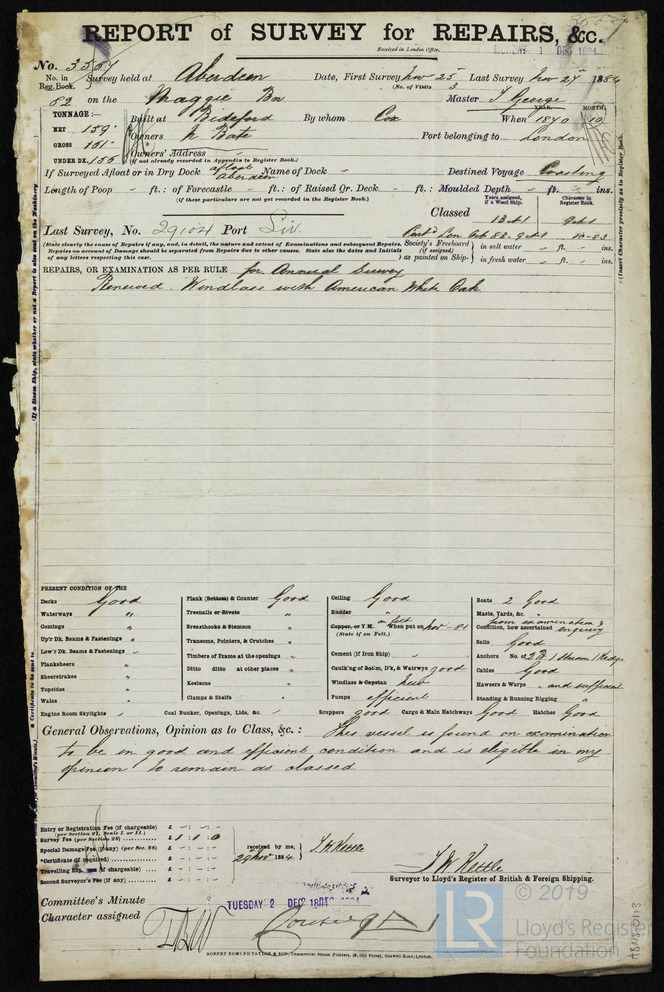 REPORT of SURVEY for REPAIRS, &c.
Received in London Office,
MONDAY 1 DEC 1884
No. 3567
No. in Survey held at Aberdeen Date, First Survey Nov 25 Last Survey Nov 27 1884
Reg. Book. (No. of Visits 3
52 on the Maggie Bn Master J George
TONNAGE:— YEAR. MONTH.
Built at Bideford By whom Cox When 1870 10
NET 159
GROSS 161 Owners N Bate Port belonging to London
UNDER DK. 155 Owners' Address
(if not already recorded in Appendix to Register Book.)
If Surveyed Afloat or in Dry Dock afloat Aberdeen Name of Dock - Destined Voyage Coasting
Length of Poop - ft.: of Forecastle - ft.: of Raised Qr. Deck - ft.: Moulded Depth - ft. ins.
(if these particulars are not yet recorded in the Register Book).
Years assigned, if a Wood Ship. Character in Register Book.
Classed 13 A1
Last Survey, No. 29104 Port Liv.
(State clearly the cause of Repairs if any, and, in detail, the nature and extent of Examinations and subsequent Repairs.
Repairs on account of Damage should be separated from Repairs due to other causes. State also the dates and Initials
of any letters respecting this case.
Society's Freeboard (if assigned) as painted on Ship- in salt water - ft. - ins.
in fresh water - ft. - ins.
REPAIRS, OR EXAMINATION AS PER RULE for Annual Survey
Renewed Windlass with American White Oak
(If a Steam Ship, state whether or not a Report is also sent on the Machinery
(Insert Character precisely as in Register Book.
PRESENT CONDITION OF THE
Decks Good
Waterways "
Comings "
Up'r Dk. Beams & Fastenings "
Low'r Dk. Beams & Fastenings -
Planksheers "
Sheerstrakes "
Topsides "
Wales "
Engine Room Skylights -
Plank (Bottom) & Counter Good
Treenails or Rivets "
Breasthooks & Stemson "
Transoms, Pointers, & Crutches "
Timbers of Frame at the openings "
Ditto ditto at other places "
Keelsons "
Clamps & Shelfs "
Coal Bunker, Openings, Lids, &c.
Ceiling Good
Rudder "
Copper, or Y.M. on felt When put on Nov - 81
(State if on Felt.)
Cement (if Iron Ship) -
Caulk'ng of Bot'm, D'k, & Watrwys good
Windlass & Capstan New
Pumps efficient
Scuppers good Cargo & Main Hatchways Good Hatches Good
Boats 2 Good
Masts, Yards, &c. "
Condition, how ascertained from examination & enquiry
Sails Good
Anchors No. of 2 B 1 Stream 1 Kedge
Cables Good
Hawsers & Warps " and sufficient
Standing & Running Rigging "
General Observations, Opinion as to Class, &c.: This vessel is found on examination
to be in good and efficient condition and is eligible in my
opinion to remain as classed
Entry or Registration Fee (if chargeable) £ - : - : -
(per Section 27, Scale I. or II.)
Survey Fee (per Section 28) £ 1 : 1 : 0
Special Damage Fee (if any) (per Sec. 28) £ - : - : -
*Certificate (if required) £ - : - : -
Travelling Exp. (if chargeable) £ - : - : -
Second Surveyor's Fee (if any) £ - : - : -
received by me,
29 Nov 1884 J W Kettle
J W Kettle
Surveyor to Lloyd's Register of British & Foreign Shipping.
Committee's Minute TUESDAY 2 DEC 1884
Character assigned
ROBERT EDMUND TAYLOR & SON, Commercial Steam Printers, 19, Old Street, Goswell Road, London.
© 2019
LR
Lloyd's Register
Foundation